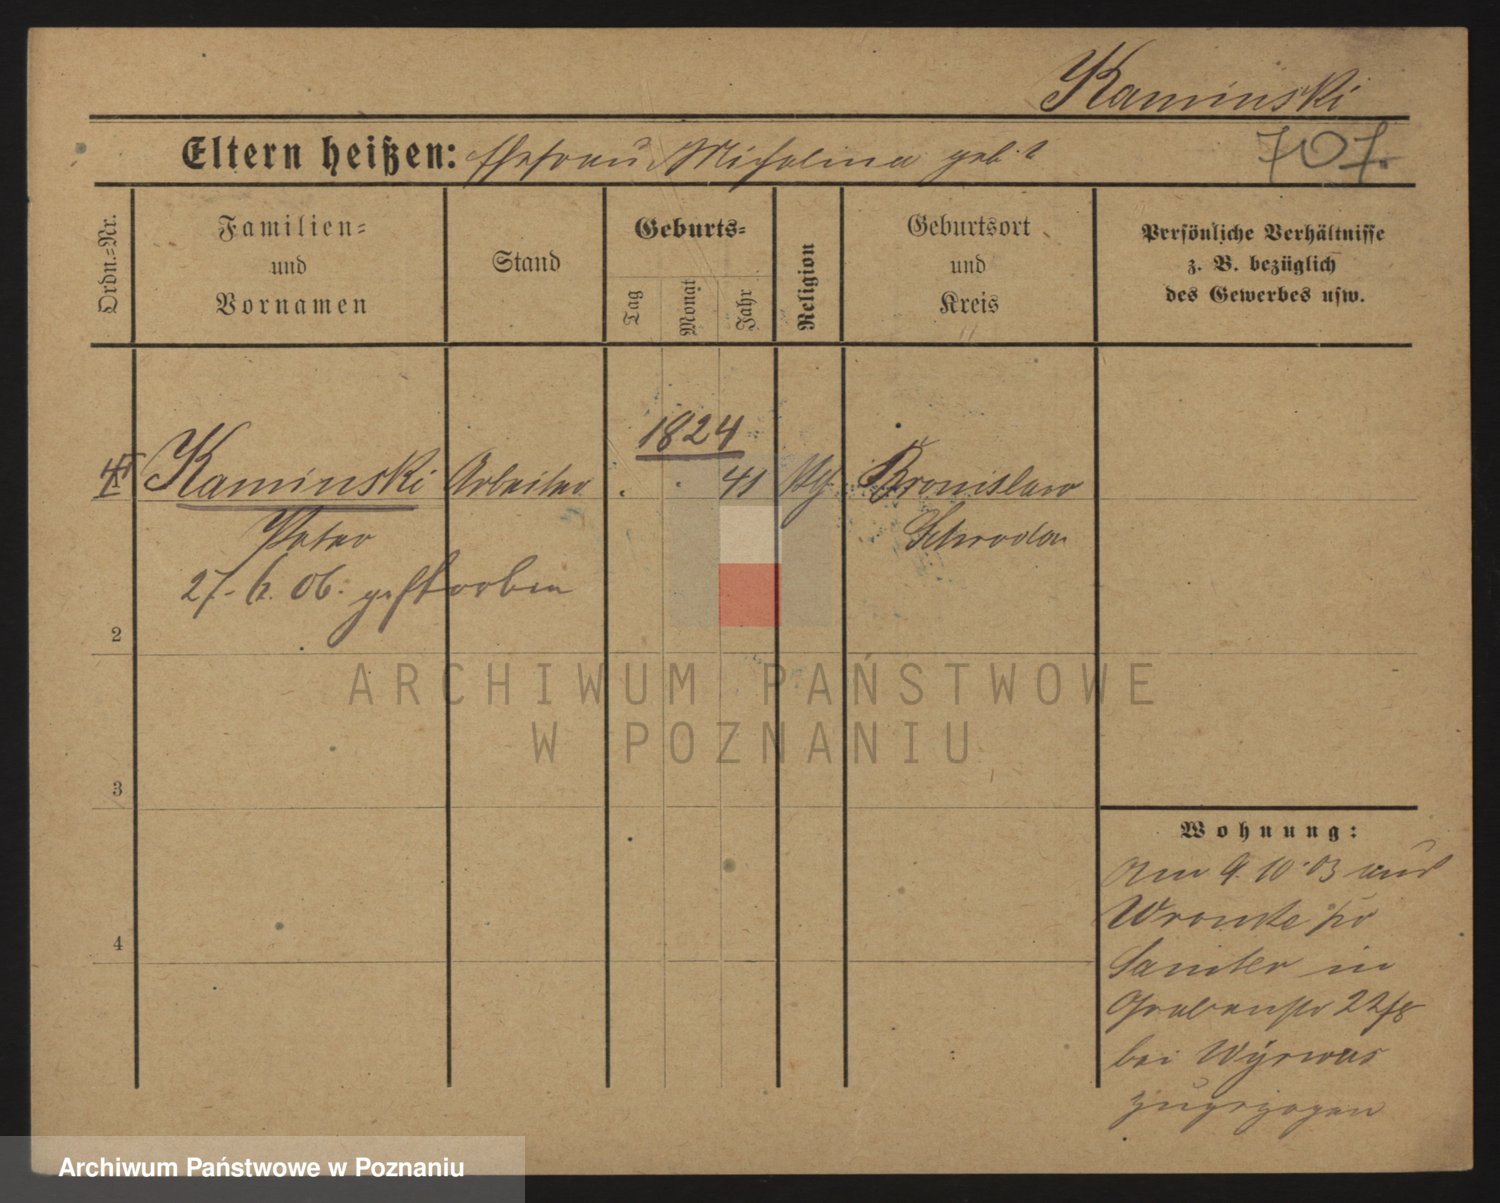 Kaminski
Eltern heißen: Ehefrau Michalina geb. ?
707.
Ordn.-Nr.
Familien-
und
Vornamen
Stand
Geburts-
Tag
Monat
Jahr
Religion
Geburtsort
und
Kreis
Persönliche Verhältnisse
z. B. bezüglich
des Gewerbes usw.
1824
Kaminski Arbeiter . . 41 Bronislaw
Peter Schroda
27. 06. gestorben
2
3
4
Wohnung:
Am 9.10.03 aus
Wronke
Samter in
Grabenstr 22/8
bei Wyrwas
zugezogen
ARCHIWUM PAŃSTWOWE
W POZNANIU
Archiwum Państwowe w Poznaniu